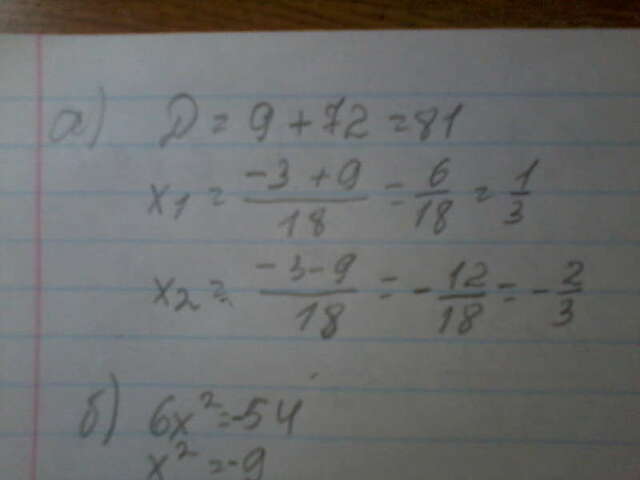 а) D = 9 + 72 = 81
x1 = (-3 + 9)/18 = 6/18 = 1/3
x2 = (-3 - 9)/18 = -12/18 = -2/3
б) 6x² = -54
x² = -9